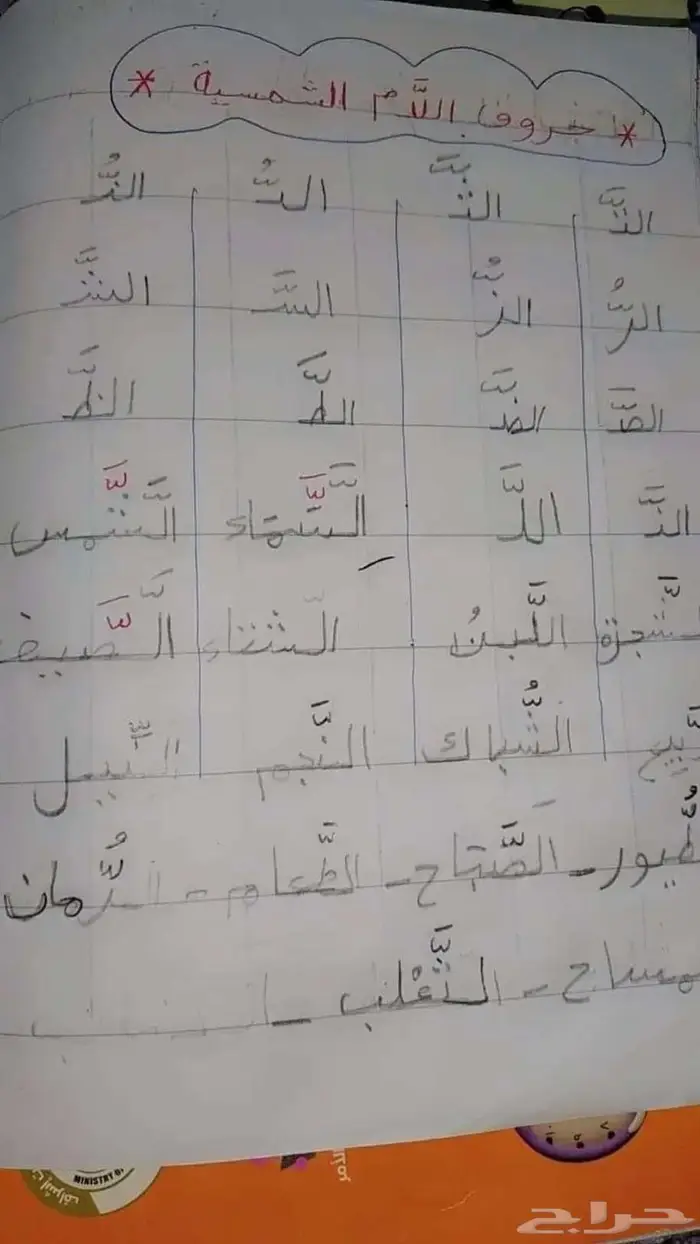 * حروف اللَّام الشمسية *
التَّ الثَّ الدُّ الذُّ
الرُّ الزُّ السَّ الشَّ
الصَّ الضَّ الطَّ الظَّ
النَّ اللَّ السَّماء الشَّمس
شَّجرة اللَّبنُ الشتاء الصَّيف
الشُّباك النَّجم النِّيل
طُّيور - الصَّباح - الطَّعام - الرُّمان
مساح - الثَّعْلب -
MINISTRY OF
حراج